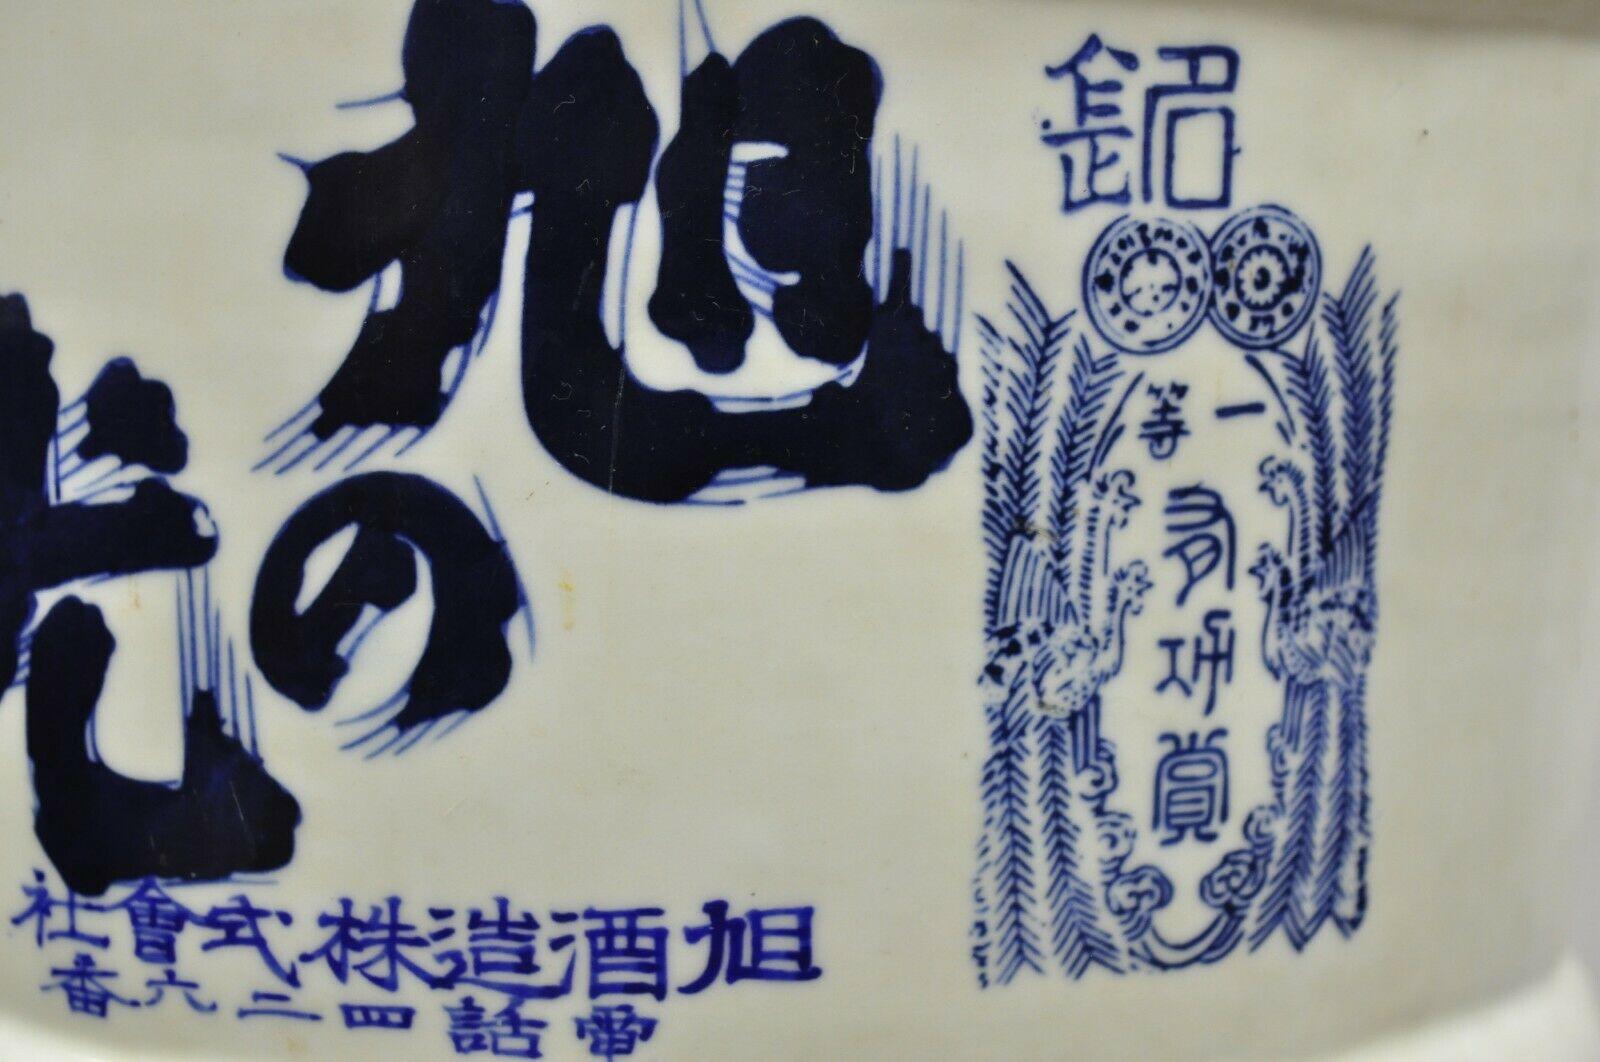 銘
一等
有功賞
旭の光
旭酒造株式會社
電話四二六番